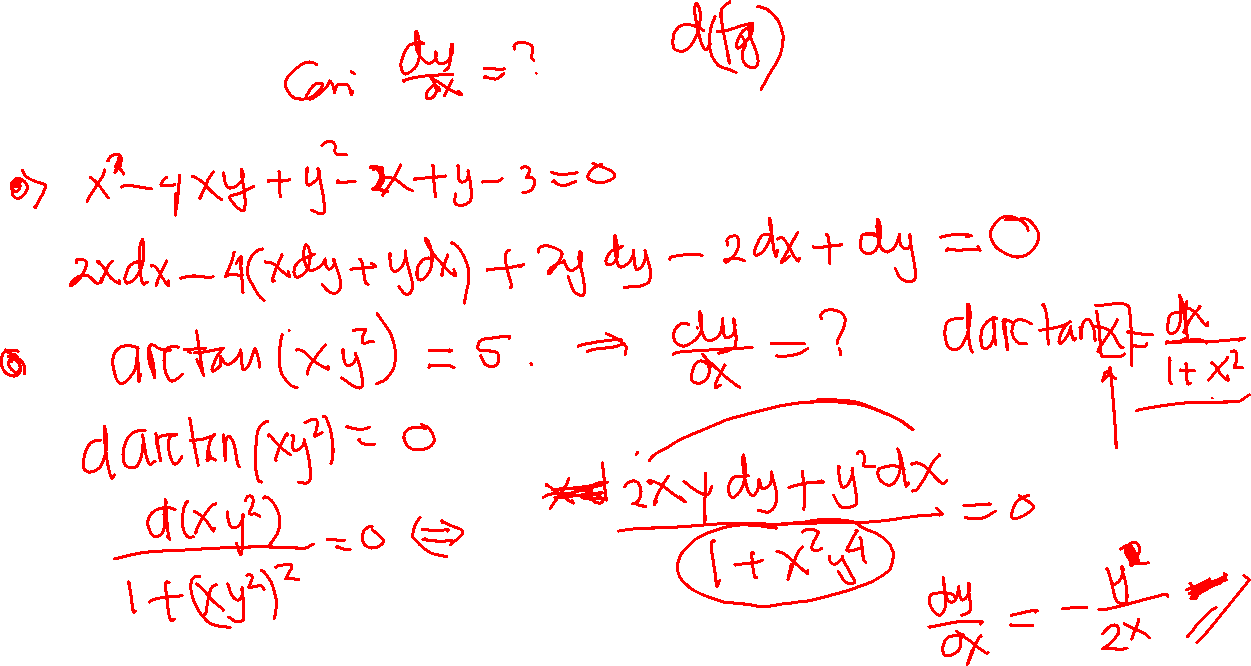 Cari dy/dx = ?
d(fg)
x² - 4xy + y² - 2x + y - 3 = 0
2xdx - 4(xdy + ydx) + 2y dy - 2dx + dy = 0
arctan(xy²) = 5. ⇒ dy/dx = ?
d arctan x = dx/(1 + x²)
d arctan(xy²) = 0
d(xy²)/(1 + (xy²)²) = 0 ⇔ (2xy dy + y²dx)/(1 + x²y⁴) = 0
dy/dx = - y/2x